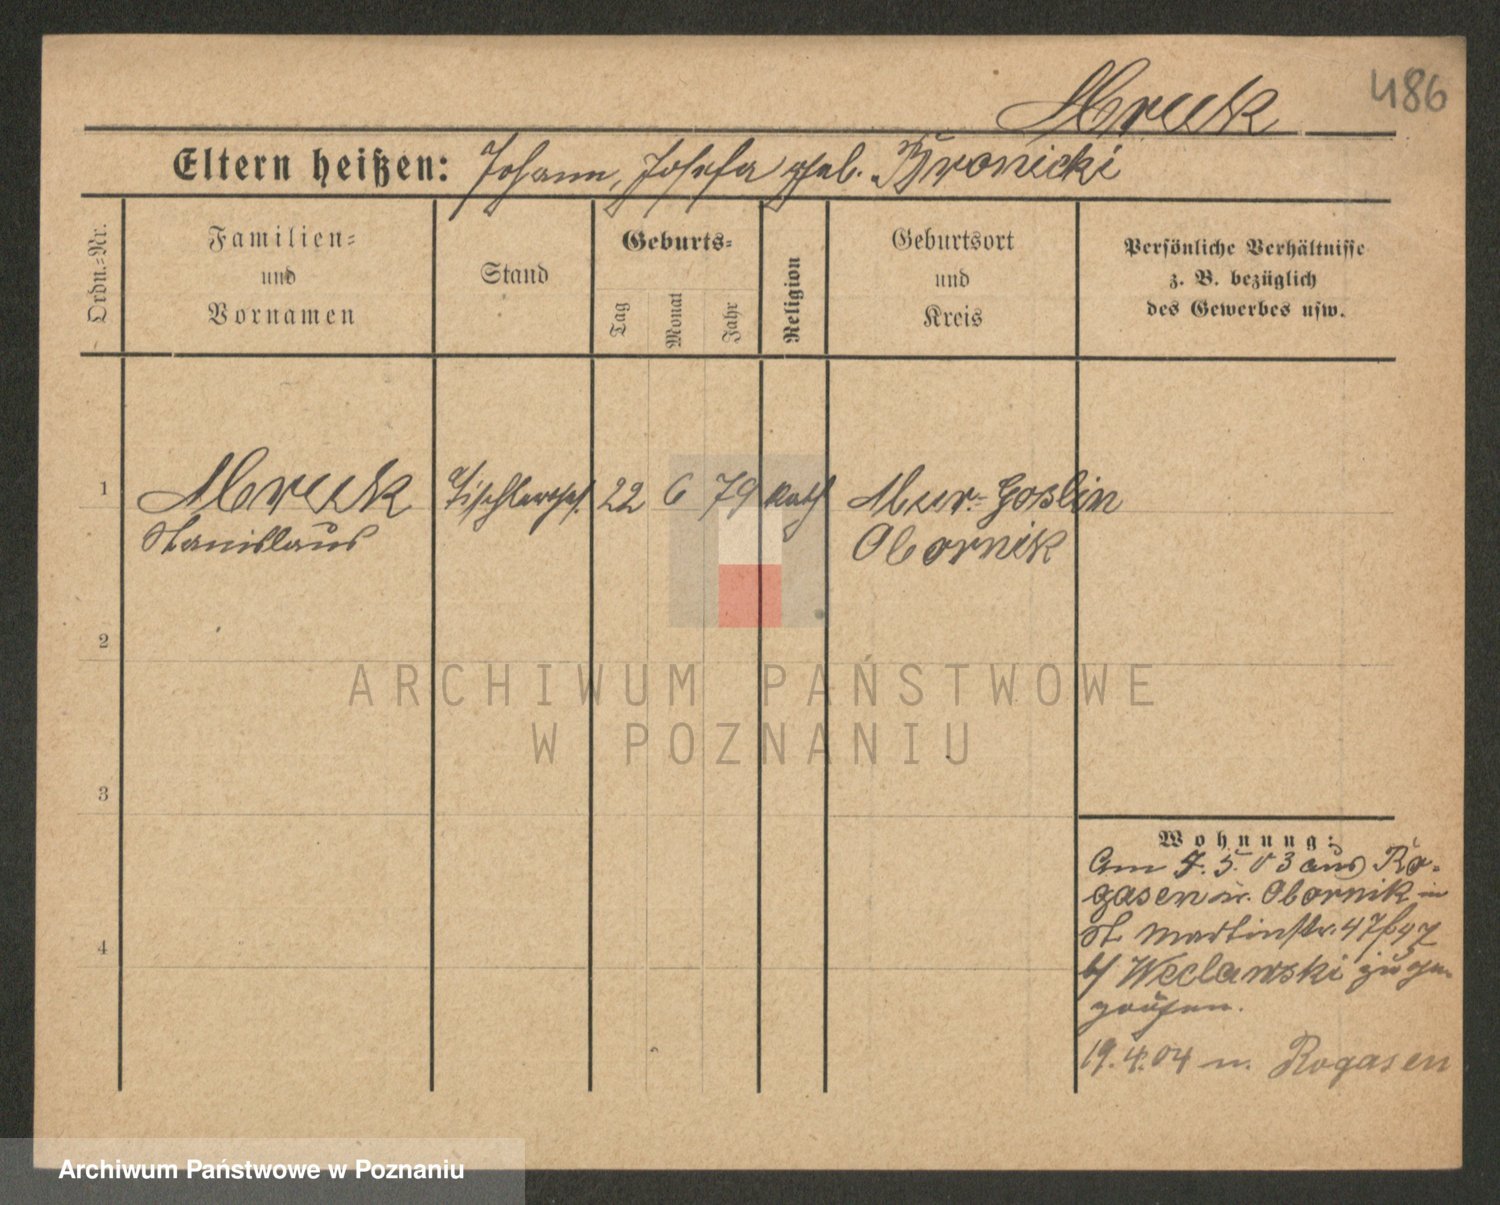 486
Mruk
Eltern heißen: Johann, Josefa geb. Bronicki
Ordn.-Nr.
Familien-
und
Vornamen
Stand
Geburts-
Tag
Monat
Jahr
Religion
Geburtsort
und
Kreis
Persönliche Verhältnisse
z. B. bezüglich
des Gewerbes usw.
1
Mruk
Stanislaus
Tischlerges.
22 6 79 kath
Mur.-Goslin
Obornik
2
3
4
Wohnung:
Am 7.5.03 aus Ro-
gasen n. Obornik in
St. Martinstr. 47
b/ Weclawski zuge-
zogen.
19.4.04 n. Rogasen
ARCHIWUM PAŃSTWOWE
W POZNANIU
Archiwum Państwowe w Poznaniu